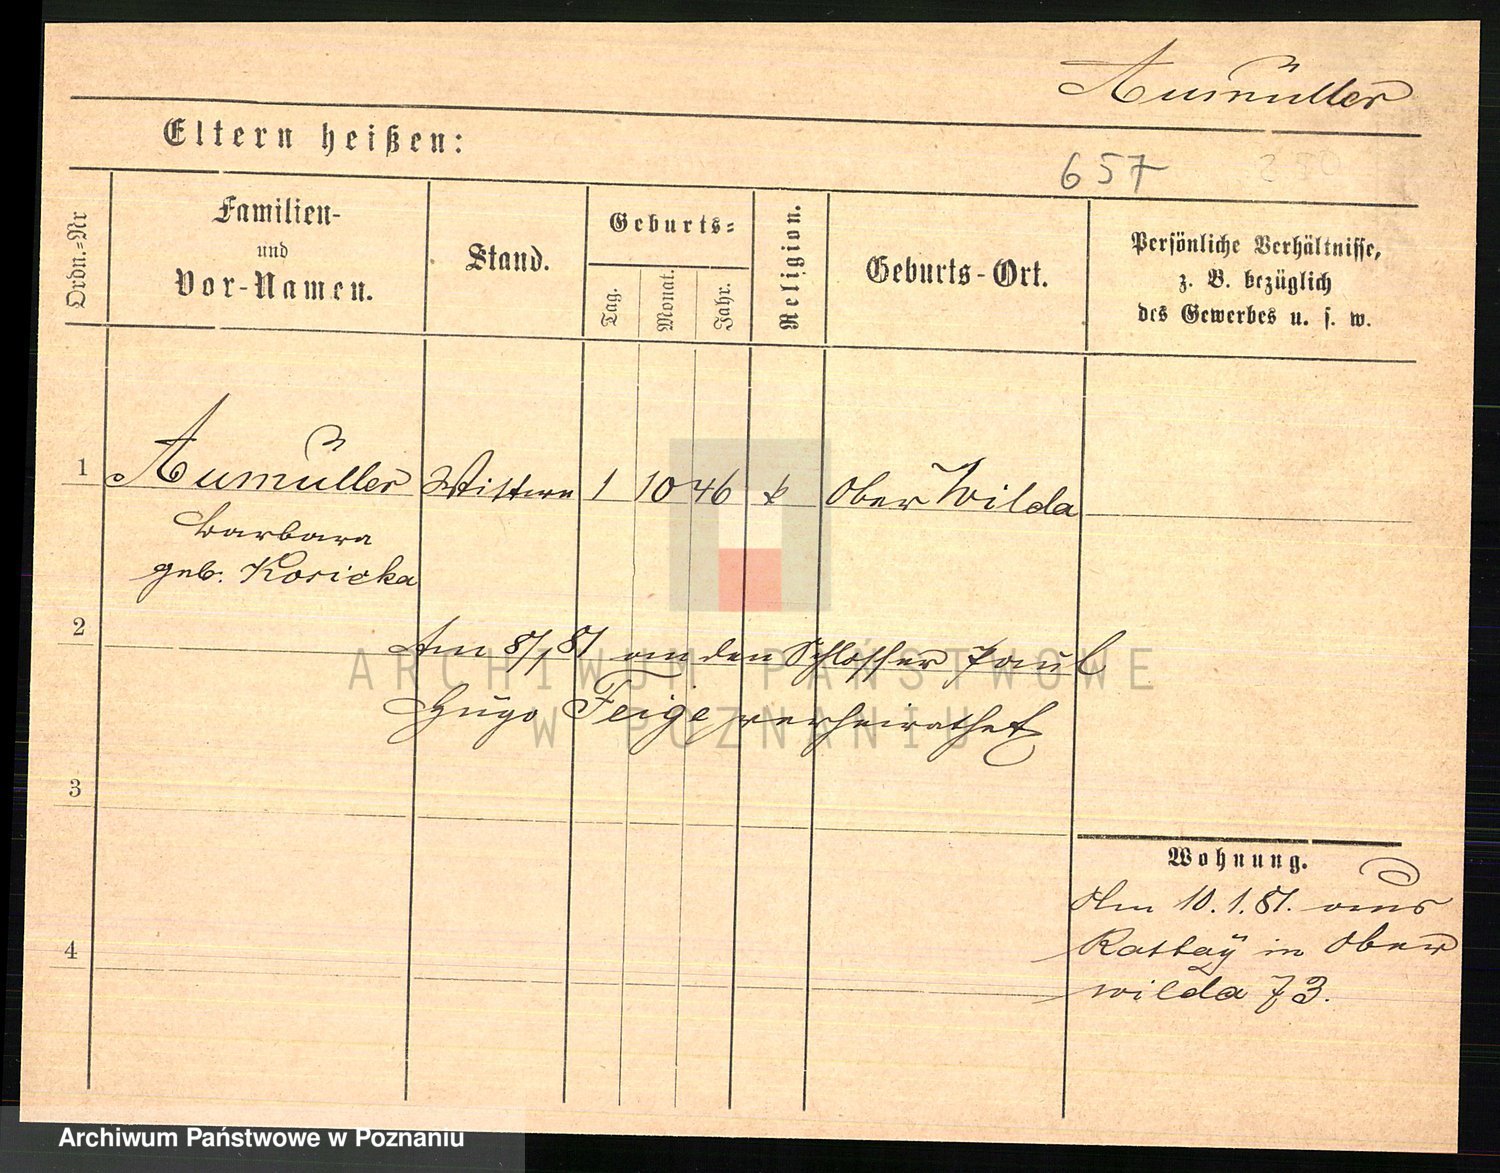 Aumüller
Eltern heißen:
657
Ordn.=Nr
Familien-
und
Vor-Namen.
Stand.
Geburts=
Tag.
Monat.
Jahr.
Religion.
Geburts-Ort.
Persönliche Verhältnisse,
z. B. bezüglich
des Gewerbes u. s. w.
1 Aumüller Wittwe 1 10 46 k Ober Wilda
Barbara
geb. Kosicka
2
Am 8/1 81 an den Schlosser Paul
Hugo Feige verheirathet
3
Wohnung.
Am 10.1.81. aus
Rattay in Ober
wilda 73.
4
ARCHIWUM PAŃSTWOWE
W POZNANIU
Archiwum Państwowe w Poznaniu